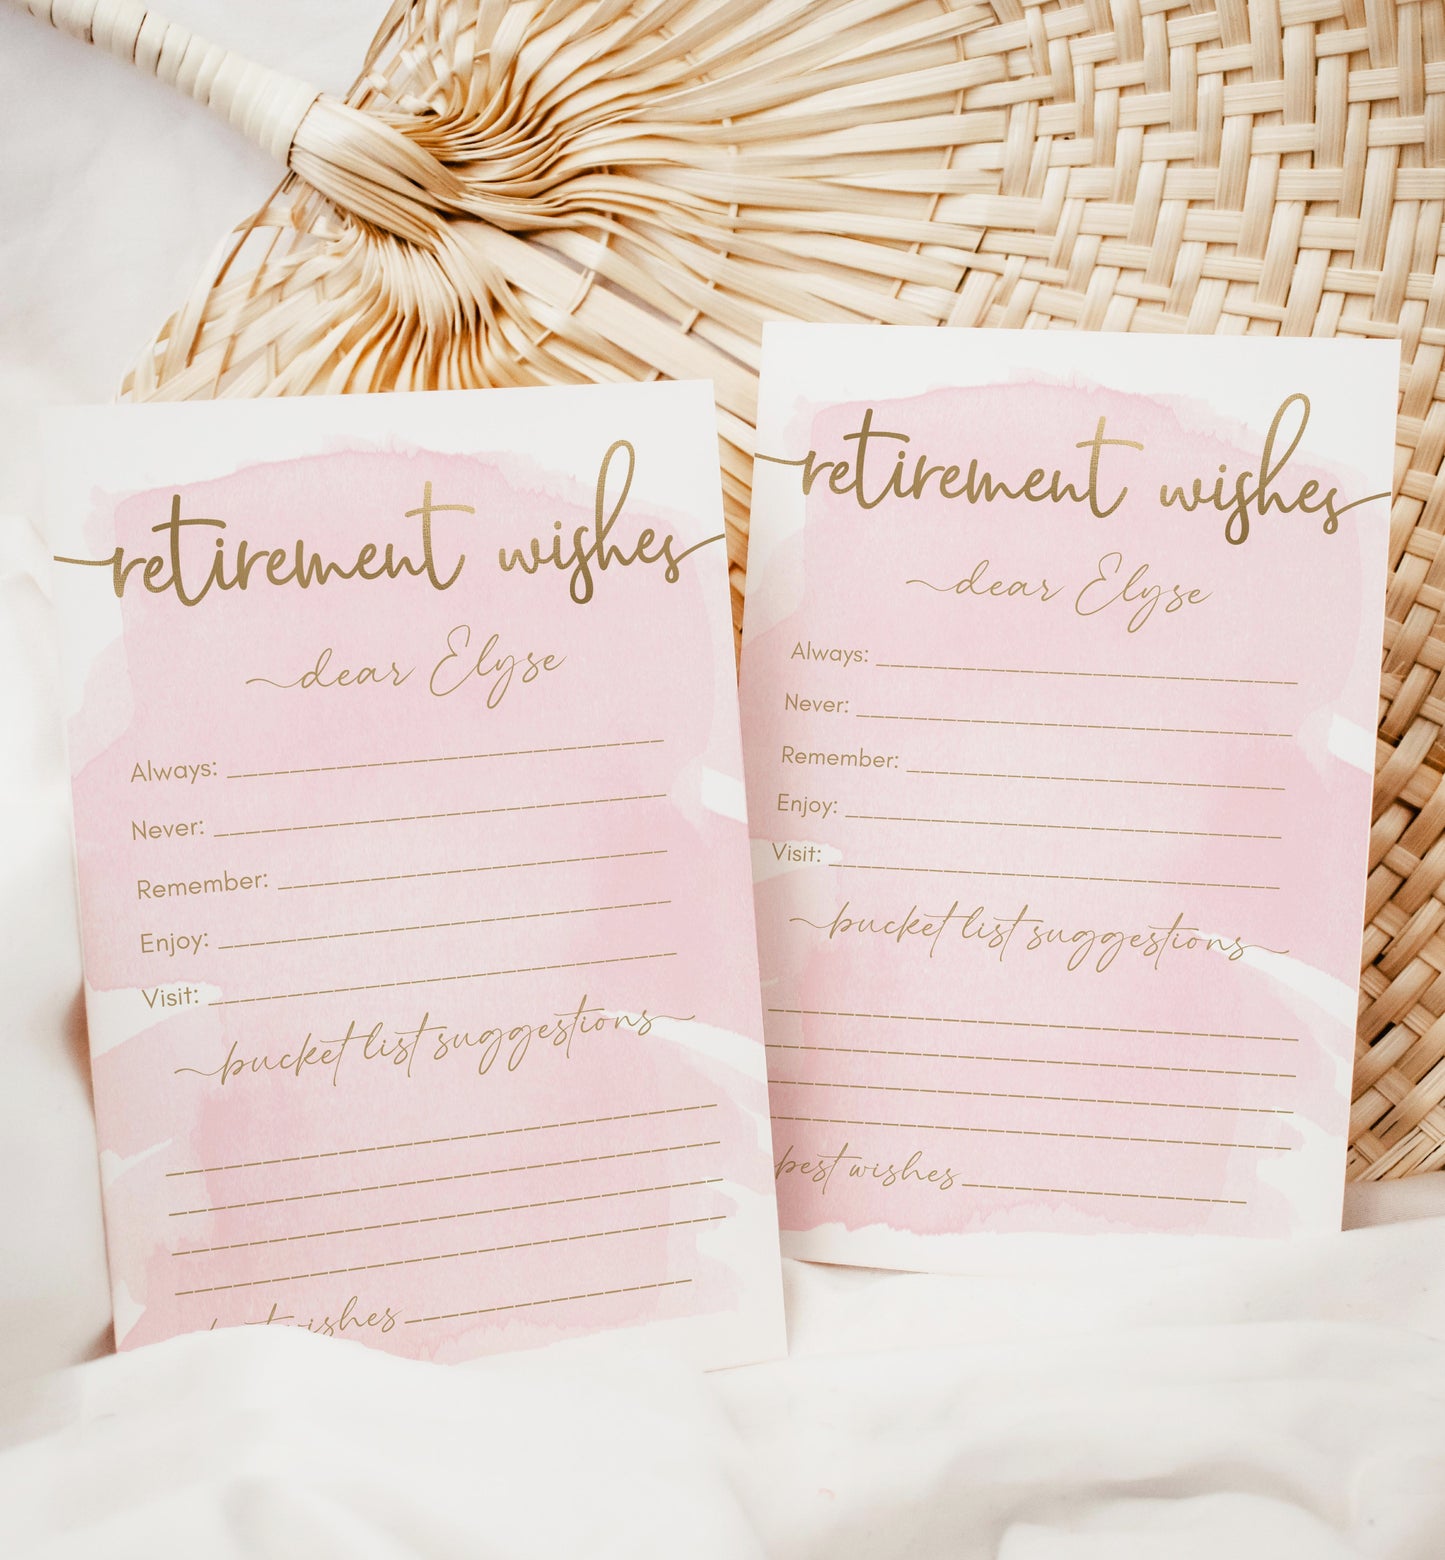 retirement wishes
dear Elyse
Always:
Never:
Remember:
Enjoy:
Visit:
bucket list suggestions
wishes
retirement wishes
dear Elyse
Always:
Never:
Remember:
Enjoy:
Visit:
bucket list suggestions
best wishes